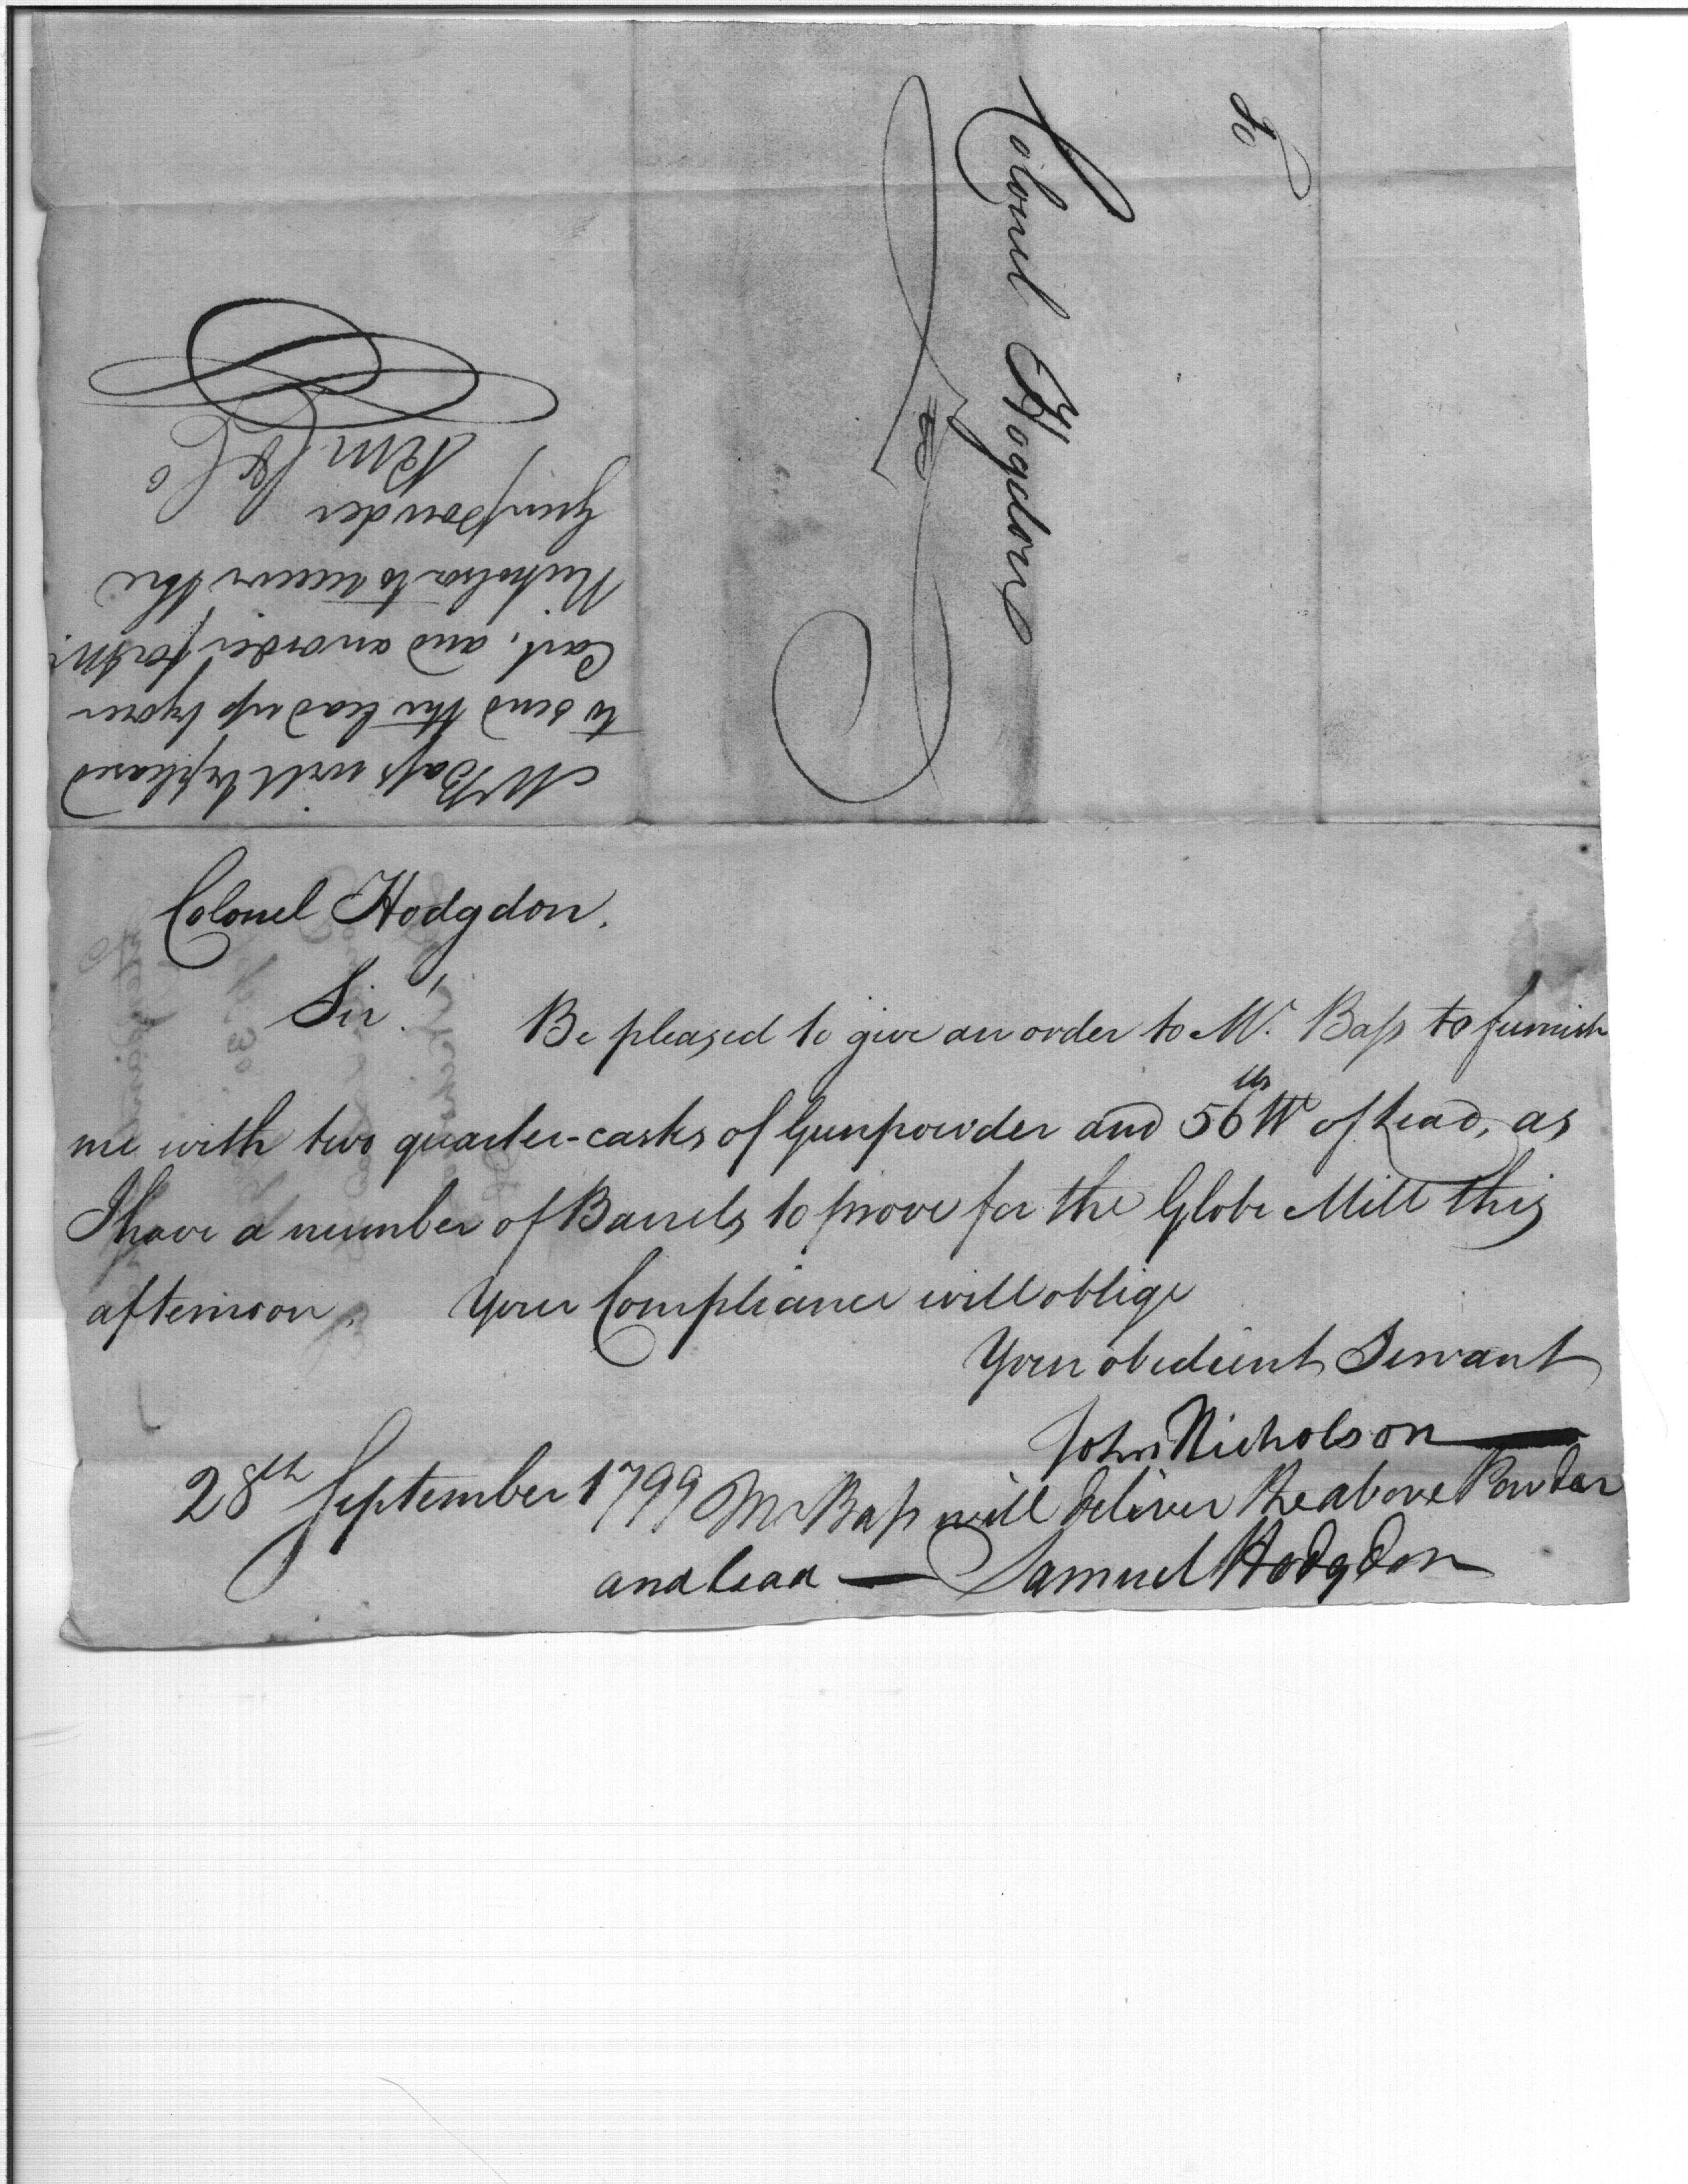 To
Colonel Hogdon
Mr Bass will be pleased
to send the lead up by our
Cart, and an order for Mr.
Nicholson to receive the
Gunpowder
&Co
Colonel Hodgdon.
Sir!
Be pleased to give an order to Mr. Bass to furnish
me with two quarter-casks of Gunpowder and 56 lbs Wt of Lead, as
I have a number of Barrels to prove for the Globe Mill this
afternoon. Your Compliance will oblige
Your obedient Servant
John Nicholson
28th September 1799
Mr Bass will deliver the above Powder
and lead — Samuel Hodgdon